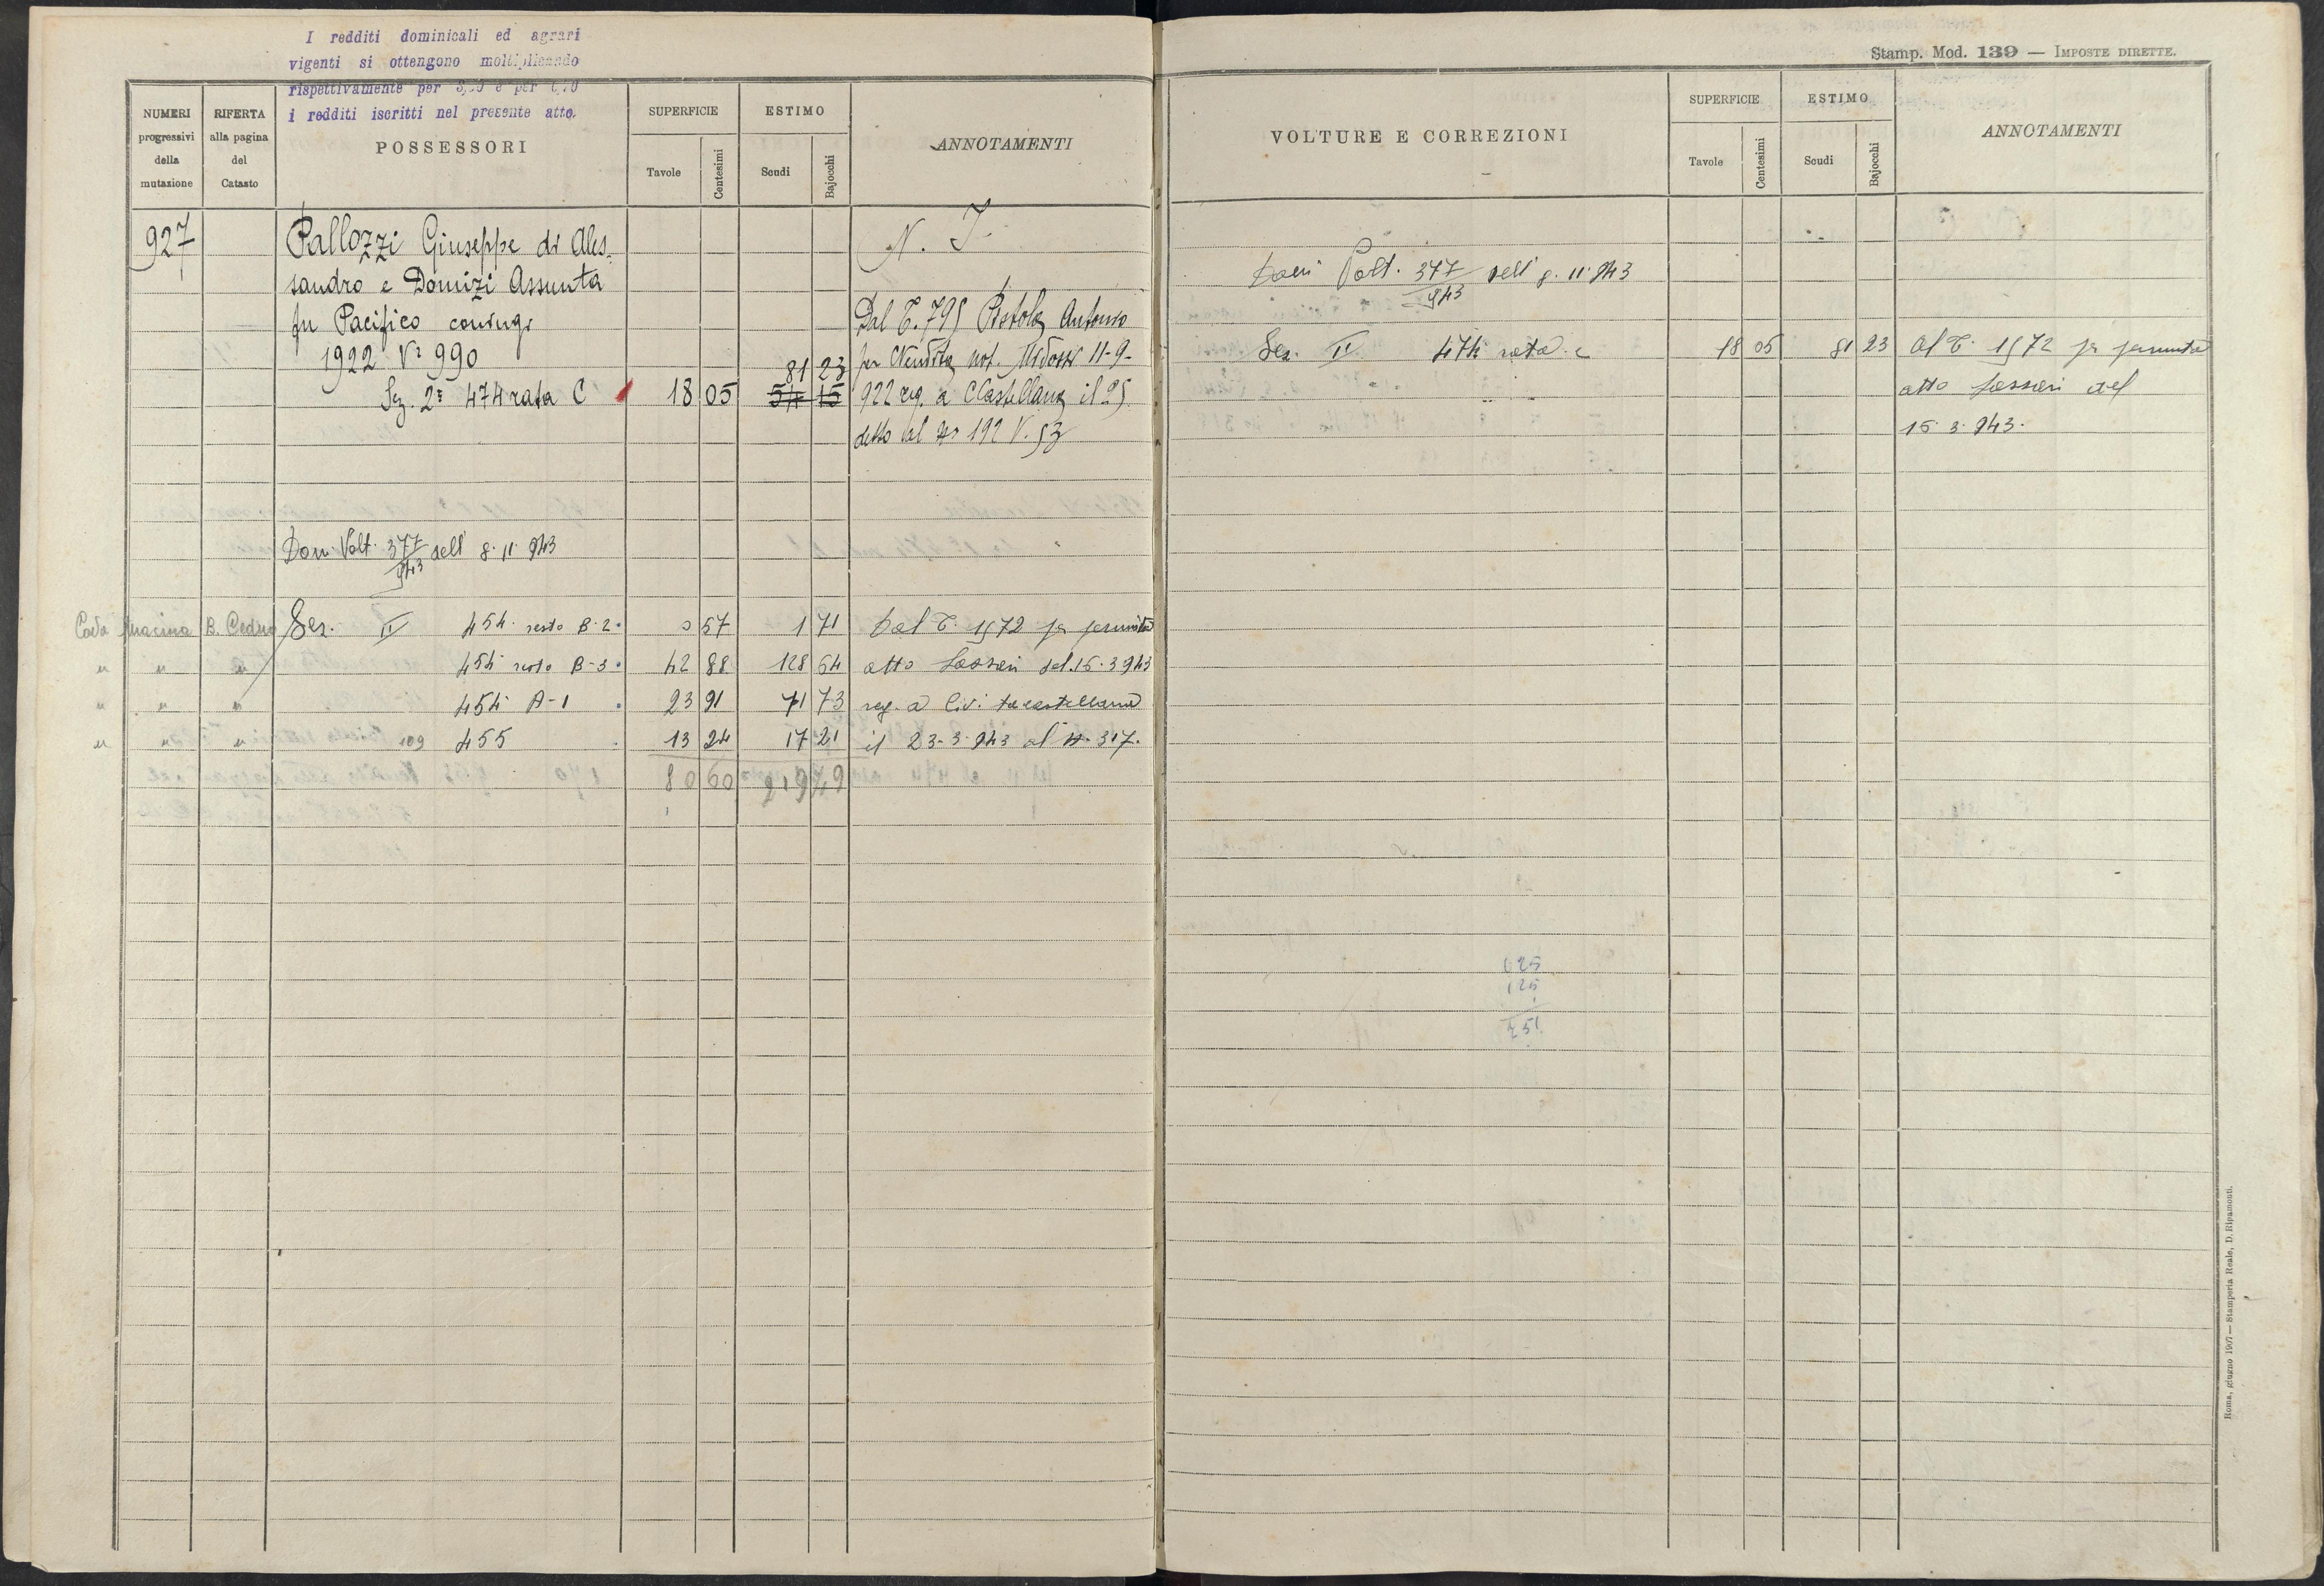 I redditi dominicali ed agrari
vigenti si ottengono moltiplicando
rispettivamente per e per
i redditi iscritti nel presente atto.
NUMERI progressivi della mutazione
RIFERTA alla pagina del Catasto
POSSESSORI
SUPERFICIE
Tavole Centesimi
ESTIMO
Scudi Bajocchi
ANNOTAMENTI
927 Pallozzi Giuseppe di Ales- N. I.
sandro e Domizi Assunta
fu Pacifico coniugi Dal T. 795 Pistola Antonio
1922 Nº 990 81 23 per Vendita not. Midossi 11-9-
Sez. 2ª 474 rata C 18 05 54 15 922 reg. a CCastellana il 25
detto al Nº 192 V. 53
Dom Volt. 377/943 dell 8. 11. 943
macina B. Ceduo Sez. II 454 resto B-2 0 57 1 71 Dal T. 1572 per permuta
" " " 454 resto B-3 42 88 128 64 atto del 15. 3 943
" " " 454 A-1 23 91 71 73 reg. a Civitacastellana
" " " 109 455 13 24 17 21 il 23. 3. 943 al N. 317.
80 60 219 49
Stamp. Mod. 139 — IMPOSTE DIRETTE.
VOLTURE E CORREZIONI
SUPERFICIE
Tavole Centesimi
ESTIMO
Scudi Bajocchi
ANNOTAMENTI
Dom Volt. 377/943 dell 8. 11. 943
Sez. II 474 rata c 18 05 81 23 Al T. 1572 per permuta
atto del
15. 3. 943.
625
125
751
Roma, giugno 1907 — Stamperia Reale, D. Ripamonti.